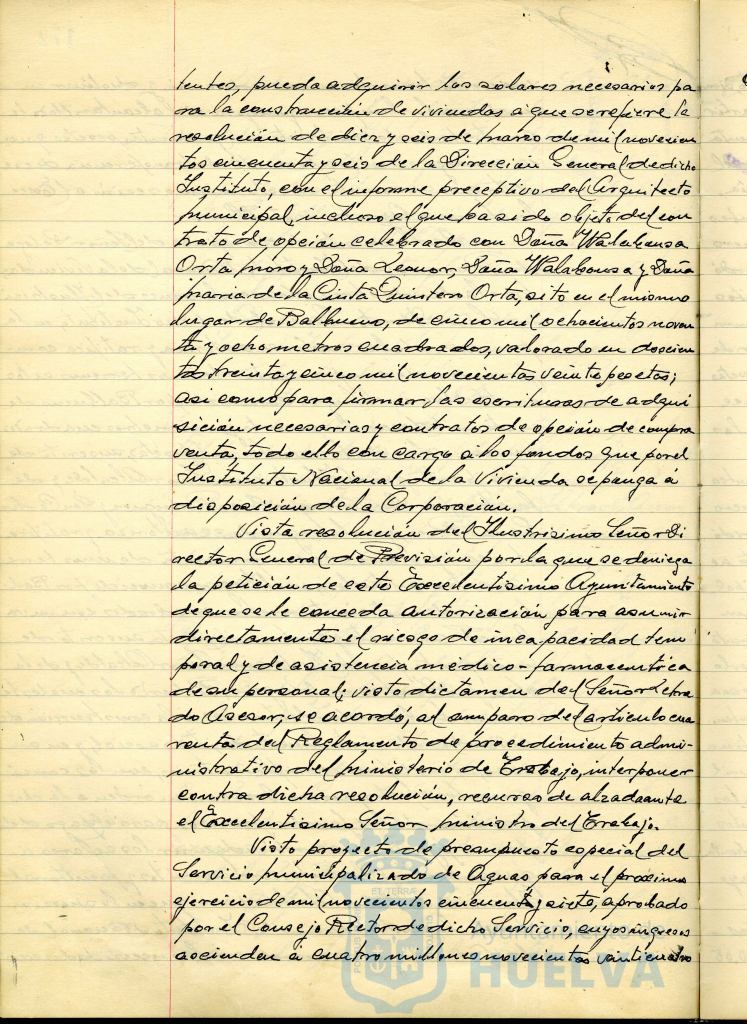 tentes, pueda adquirir los solares necesarios pa
ra la construcción de viviendas a que se refiere la
resolución de diez y seis de marzo de mil novecien
tos cincuenta y seis de la Dirección General de dicho
Instituto, con el informe preceptivo del Arquitecto
municipal, incluso el que ha sido objeto del con
trato de opción celebrado con Doña Walabonsa
Orta moro y Doña Leonor, Doña Walabonsa y Doña
maria de la Cinta Quintero Orta, sito en el mismo
lugar de Balbueno, de cinco mil ochocientos noven
ta y ocho metros cuadrados, valorado en doscien
tas treinta y cinco mil novecientas veinte pesetas;
asi como para firmar las escrituras de adqui
sición necesarias y contratos de opción de compra
venta, todo ello con cargo a los fondos que por el
Instituto Nacional de la Vivienda se ponga á
disposición de la Corporación.
Vista resolución del Ilustrisimo Señor Di
rector General de Previsión por la que se deniega
la petición de este Excelentisimo Ayuntamiento
de que se le conceda autorización para asumir
directamente el riesgo de incapacidad tem
poral y de asistencia médico-farmaceutica
de su personal; visto dictamen del Señor Letra
do Asesor, se acordó, al amparo del articulo cua
renta del Reglamento de procedimiento admi-
nistrativo del ministerio de Trabajo, interponer
contra dicha resolución, recurso de alzada ante
el Excelentisimo Señor ministro del Trabajo.
Visto proyecto de presupuesto especial del
Servicio municipalizado de Aguas para el proximo
ejercicio de mil novecientos cincuenta y siete, aprobado
por el Consejo Rector de dicho Servicio, cuyos ingresos
ascienden á cuatro millones novecientas veinticuatro
Ayuntamiento
HUELVA